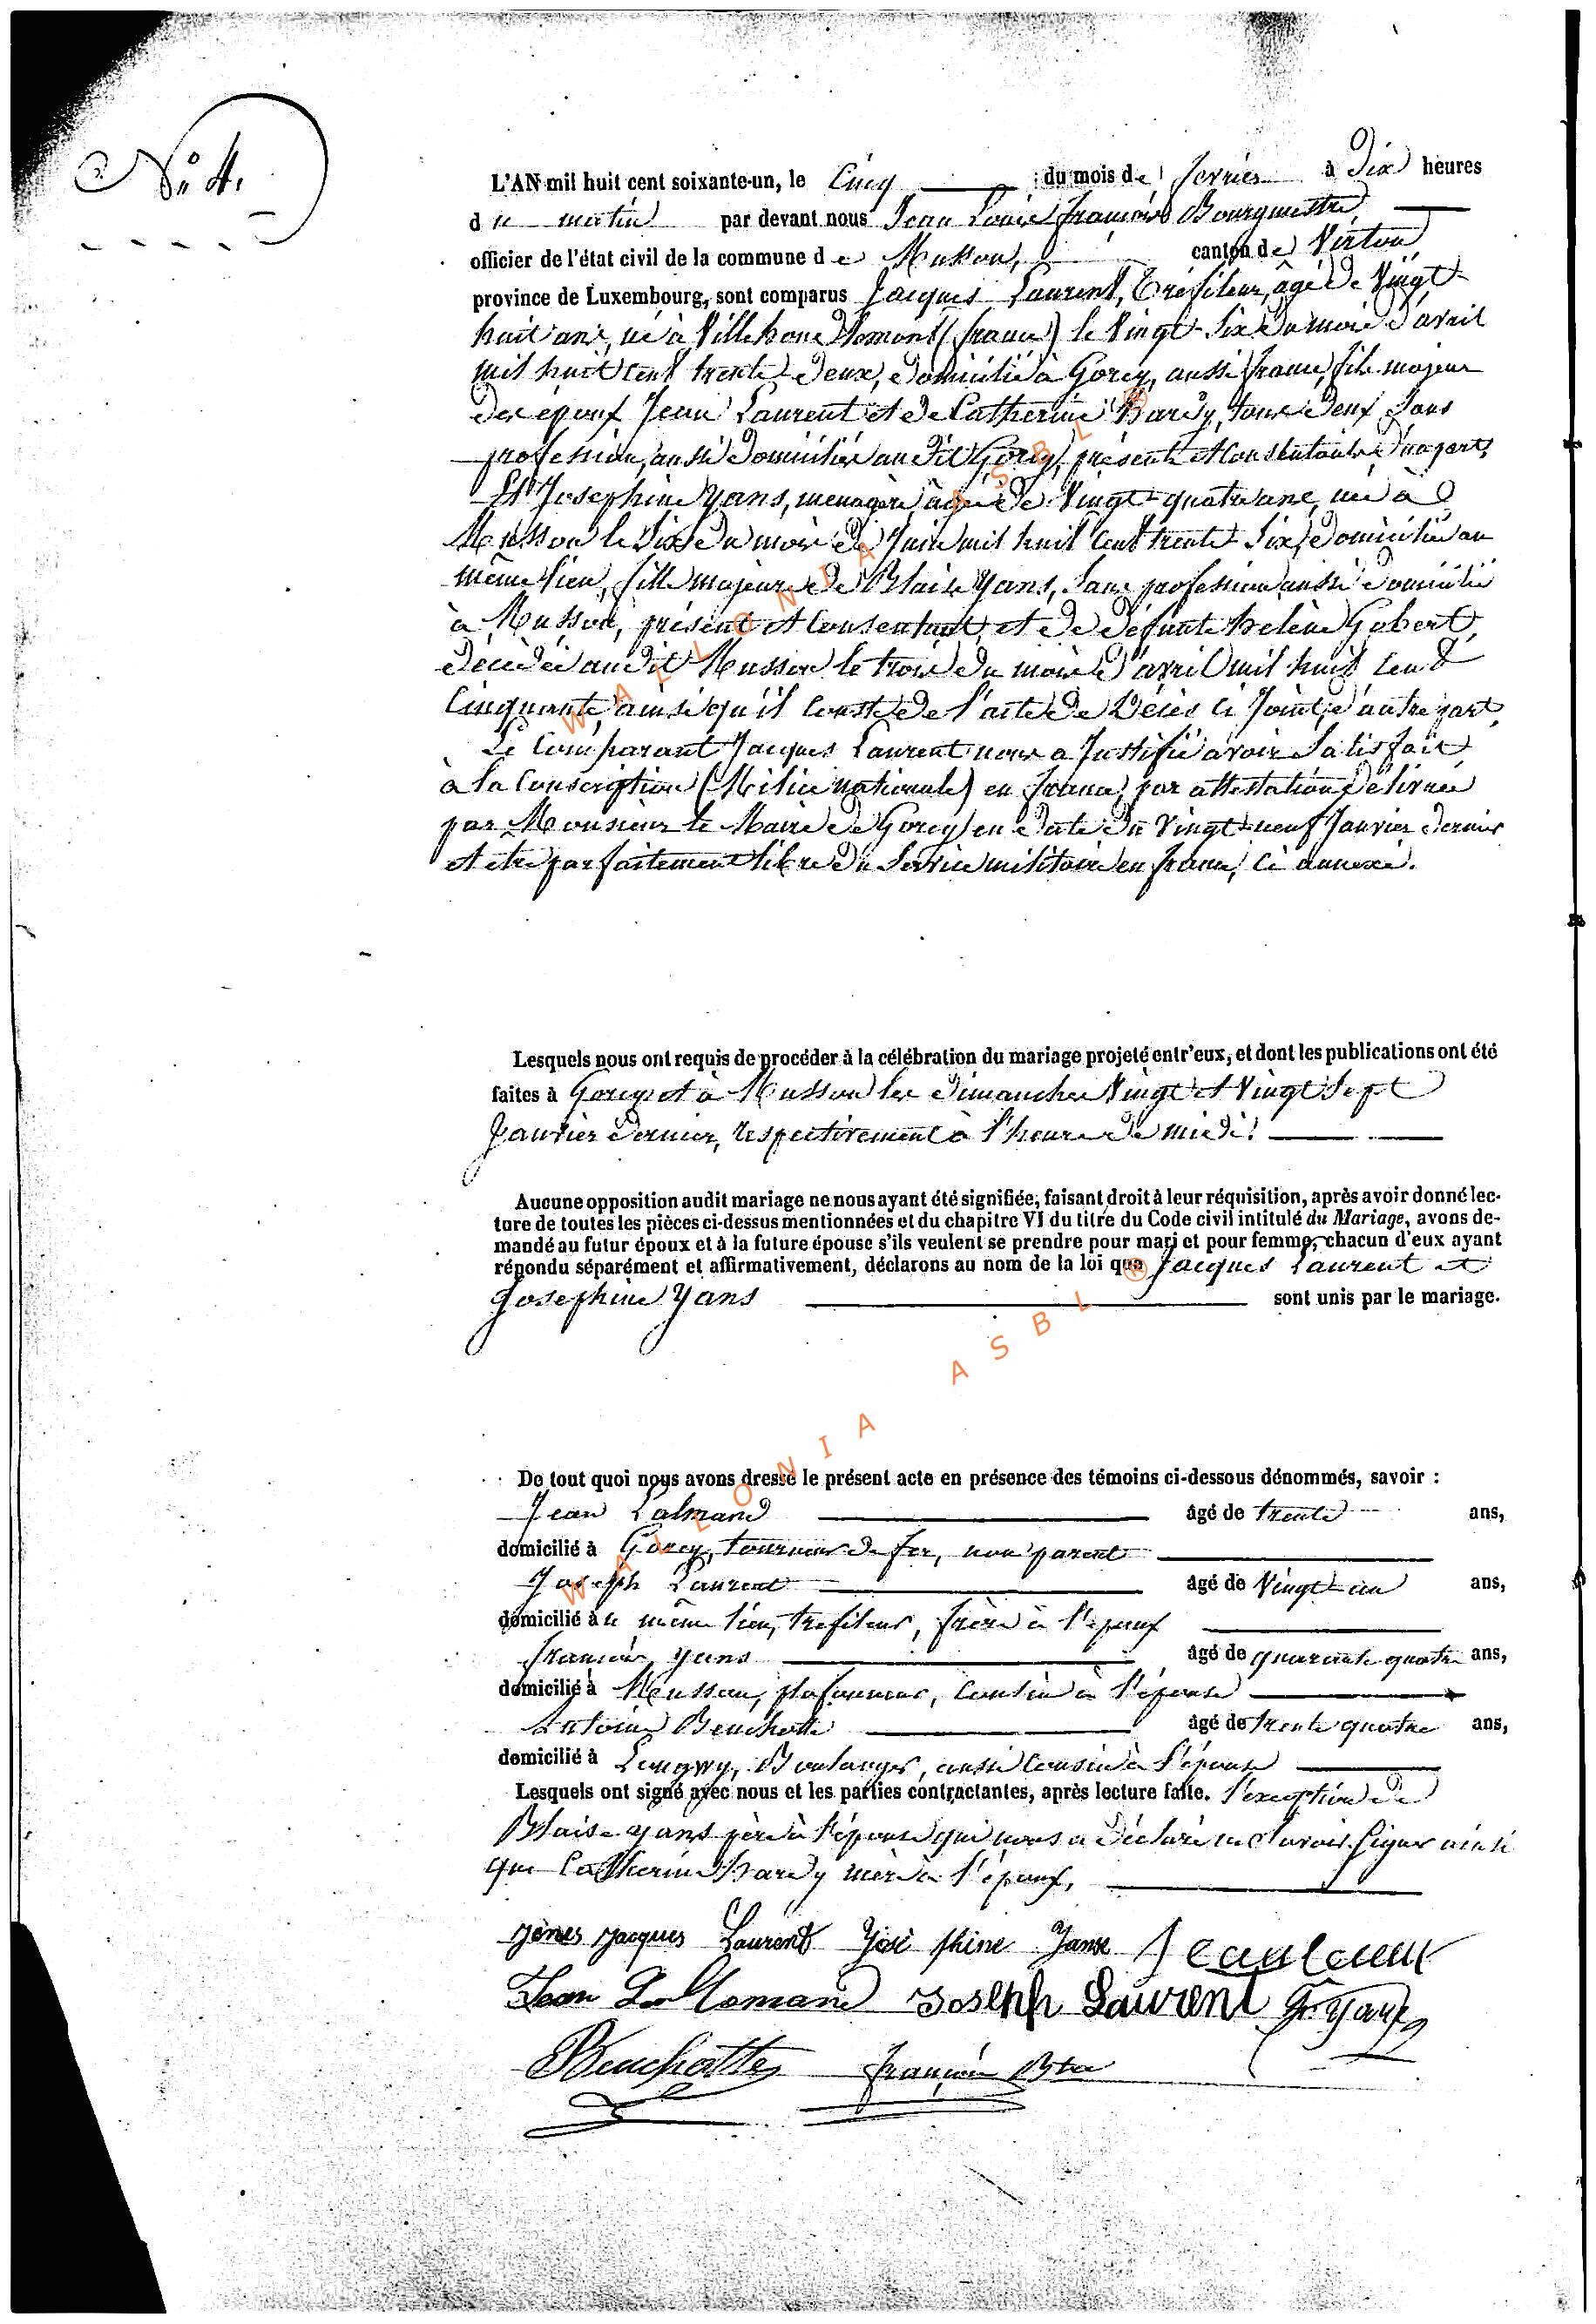 N.° 4.
L'AN mil huit cent soixante-un, le Cinq du mois de fevrier à Dix heures
du matin par devant nous Jean Louis françois Bourgmestre,
officier de l'état civil de la commune de Musson, canton de Virton
province de Luxembourg, sont comparus Jacques Laurent, Tréfileur, âgé de Vingt-
huit ans, né à Ville houdlémont (france) le Vingt-Six du mois d'avril
mil huit cent trente-deux, domicilié à Gorcy, aussi france, fils majeur
des époux Jean Laurent et de Catherine Hardy, tous deux sans
profession, aussi domiciliés audit Gorcy, présents et consentants d'une part,
Et Josephine Yans, menagère âgée de Vingt-quatre ans, née à
Musson le Six du mois de Juin mil huit cent trente-Six, domiciliée au
même lieu, fille majeure de Blaise Yans, sans profession aussi domicilié
à Musson, présent et consentant, et de défunte helène Gobert,
décédée audit Musson le trois du mois d'avril mil huit cent
Cinquante, ainsi qu'il conste de l'acte de Décès ci Joint, d'autre part,
Le Comparant Jacques Laurent nous a Justifié avoir Satisfait
à la Conscription (Milice nationale) en france, par attestation délivrée
par Monsieur le Maire de Gorcy en date du Vingt-neuf Janvier dernier
et être parfaitement libre du Service militaire en france, ci annexé.
Lesquels nous ont requis de procéder à la célébration du mariage projeté entr'eux, et dont les publications ont été
faites à Gorcy et à Musson les dimanches Vingt et Vingt Sept
Janvier dernier, respectivement à l'heure de midi.
Aucune opposition audit mariage ne nous ayant été signifiée, faisant droit à leur réquisition, après avoir donné lec-
ture de toutes les pièces ci-dessus mentionnées et du chapitre VI du titre du Code civil intitulé du Mariage, avons de-
mandé au futur époux et à la future épouse s'ils veulent se prendre pour mari et pour femme, chacun d'eux ayant
répondu séparément et affirmativement, déclarons au nom de la loi que Jacques Laurent et
Josephine Yans sont unis par le mariage.
De tout quoi nous avons dressé le présent acte en présence des témoins ci-dessous dénommés, savoir :
Jean Lalmand âgé de trente ans,
domicilié à Gorcy, tourneur de fer, non parent
Joseph Laurent âgé de Vingt-un ans,
domicilié au même lieu, trefileur, frère à l'epoux
françois Yans âgé de quarante quatre ans,
domicilié à Musson, plafonneur, cousin à l'épouse
Antoine Beuchotte âgé de trente quatre ans,
domicilié à Longwy, Boulanger, aussi cousin à l'épouse
Lesquels ont signé avec nous et les parties contractantes, après lecture faite. l'exception de
Blaise Yans père à l'épouse qui nous a déclaré ne savoir signer ainsi
que Catherine Hardy mère à l'époux,
Jacques Laurent Josè phine Yans
Jean Lallemand Joseph Laurent Fr. Yans
Beuchotte françois
WALLONIA ASBL ®
WALLONIA ASBL ®